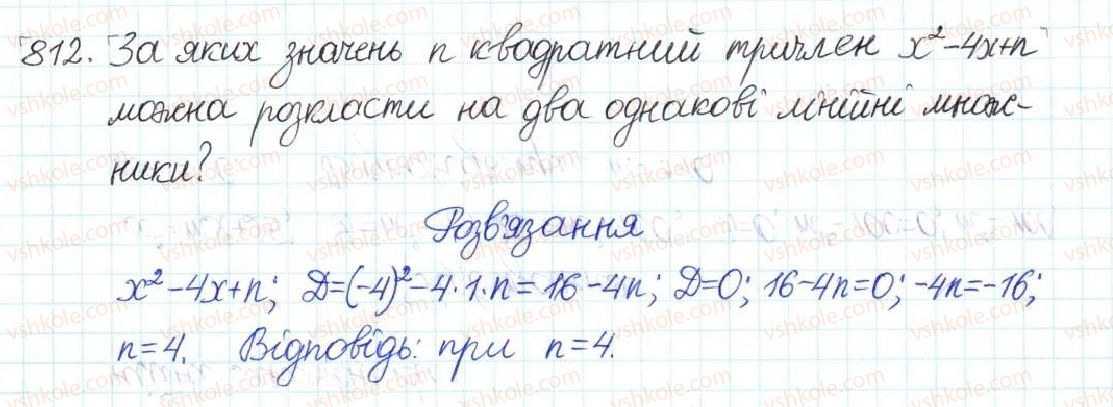 812. За яких значень n квадратний тричлен x²-4x+n
можна розкласти на два однакові лінійні множ-
ники?
Розв'язання
x²-4x+n; D=(-4)²-4·1·n=16-4n; D=0; 16-4n=0; -4n=-16;
n=4. Відповідь: при n=4.